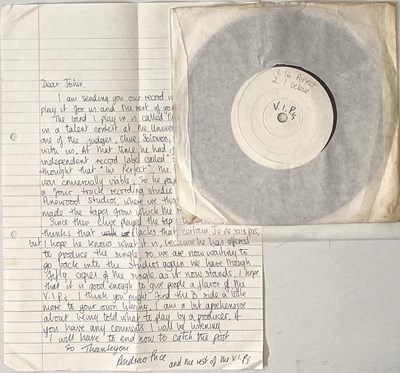 Dear John
I am sending you our record in
play it for us and the rest of your
The band I play in is called
in a talent contest at the Univers
one of the judges, Clive Solomon,
with us. At that time he had
independent record label called
thought that "Im Perfect" the
was commercially viable. So he pa
a four track recording studio
Pinewood Studios, where we th
made the tapes from which the
Since then Clive played the tape
thinks that lacks that certain Je ne sais pas,
but I hope he knows what it is, because he has offered
to produce the single, so we are now waiting to
go back into the studios again. We have though
fifty copies of the single as it now stands. I hope
that it is good enough to give people a flavor of the
V.I.P.s. I think you might find the B side a little
more to your own liking. I am a bit aprehensive
about being told what to play by a producer, if
you have any comments I will be
I will have to end now to catch the post
So Thankyou
Andrew Price
and the rest of the V.I.P.s
1. Im Perfect
2. I believe
V.I.Ps